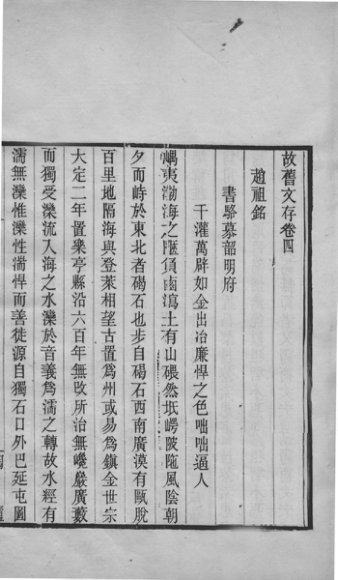 故舊文存卷四
趙祖銘
書駱慕韶明府
千灌萬辟如金出冶廉悍之色咄咄逼人
嵎夷渤海之匯負鹵瀉土有山磈然坻崿陂陁風陰朝
夕而峙於東北者碣石也步自碣石西南廣漠有甌脫
百里地隔海與登萊相望古置爲州或易爲鎮金世宗
大定二年置樂亭縣沿六百年無改所治無巉巖廣藪
而獨受灤流入海之水灤於音義爲濡之轉故水經有
濡無灤惟灤性湍悍而善徙源自獨石口外巴延屯圖